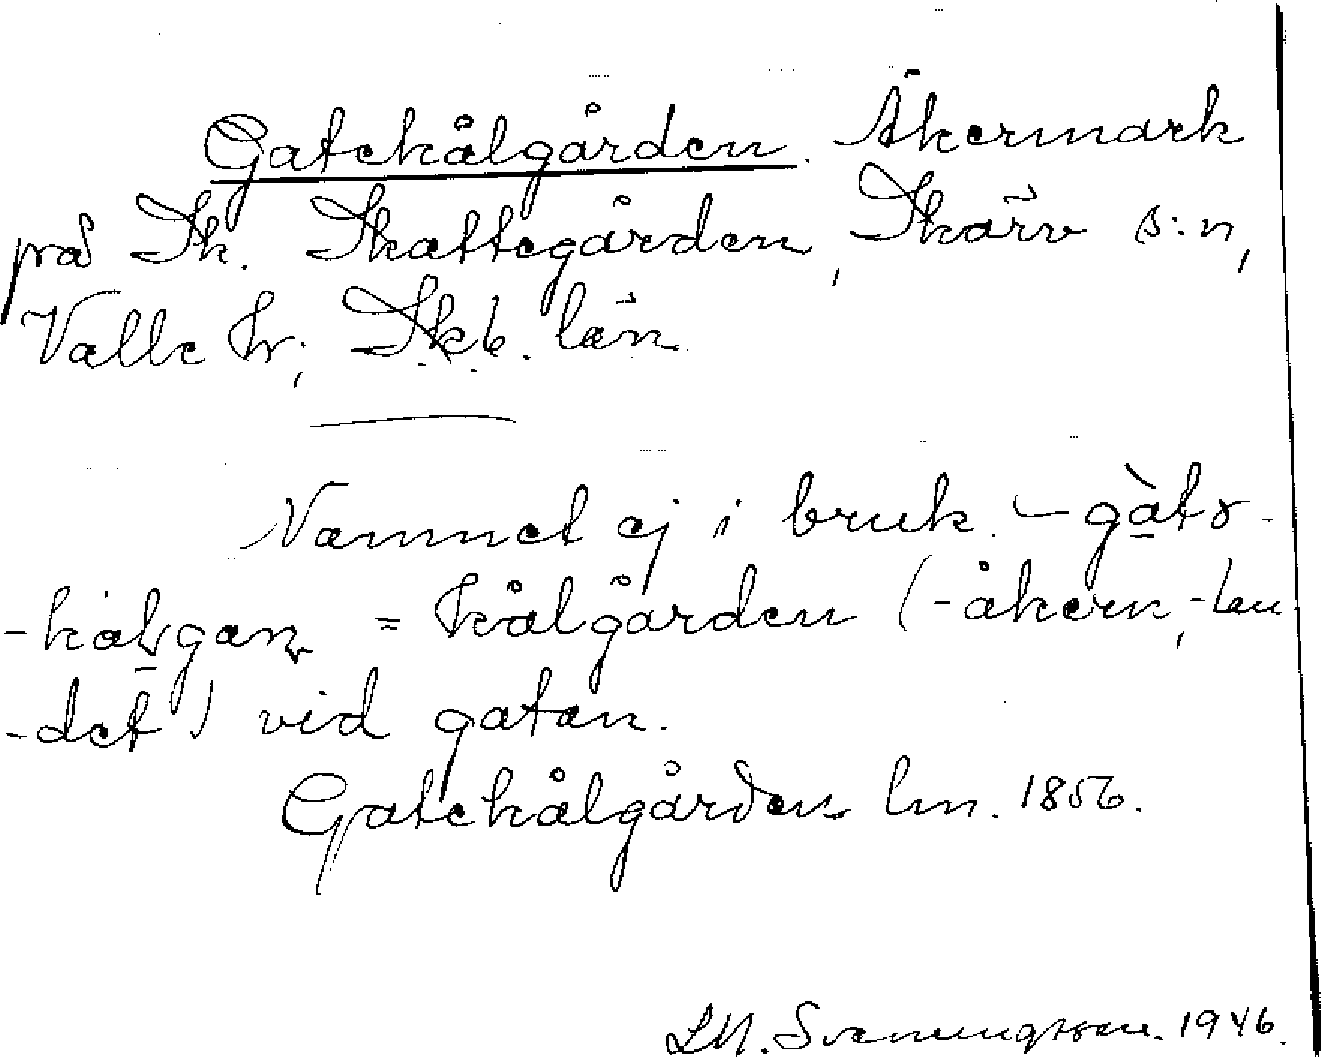 Gatekålgården. Åkermark
på Sk. Skattegården, Skärv s:n,
Valle hr, Skb. län.
Namnet ej i bruk. – gàtə-
-kålgan = kålgården (-åkern, -lan
-det) vid gatan.
Gatekålgården lm. 1856.
LM. Svenungsson. 1946.